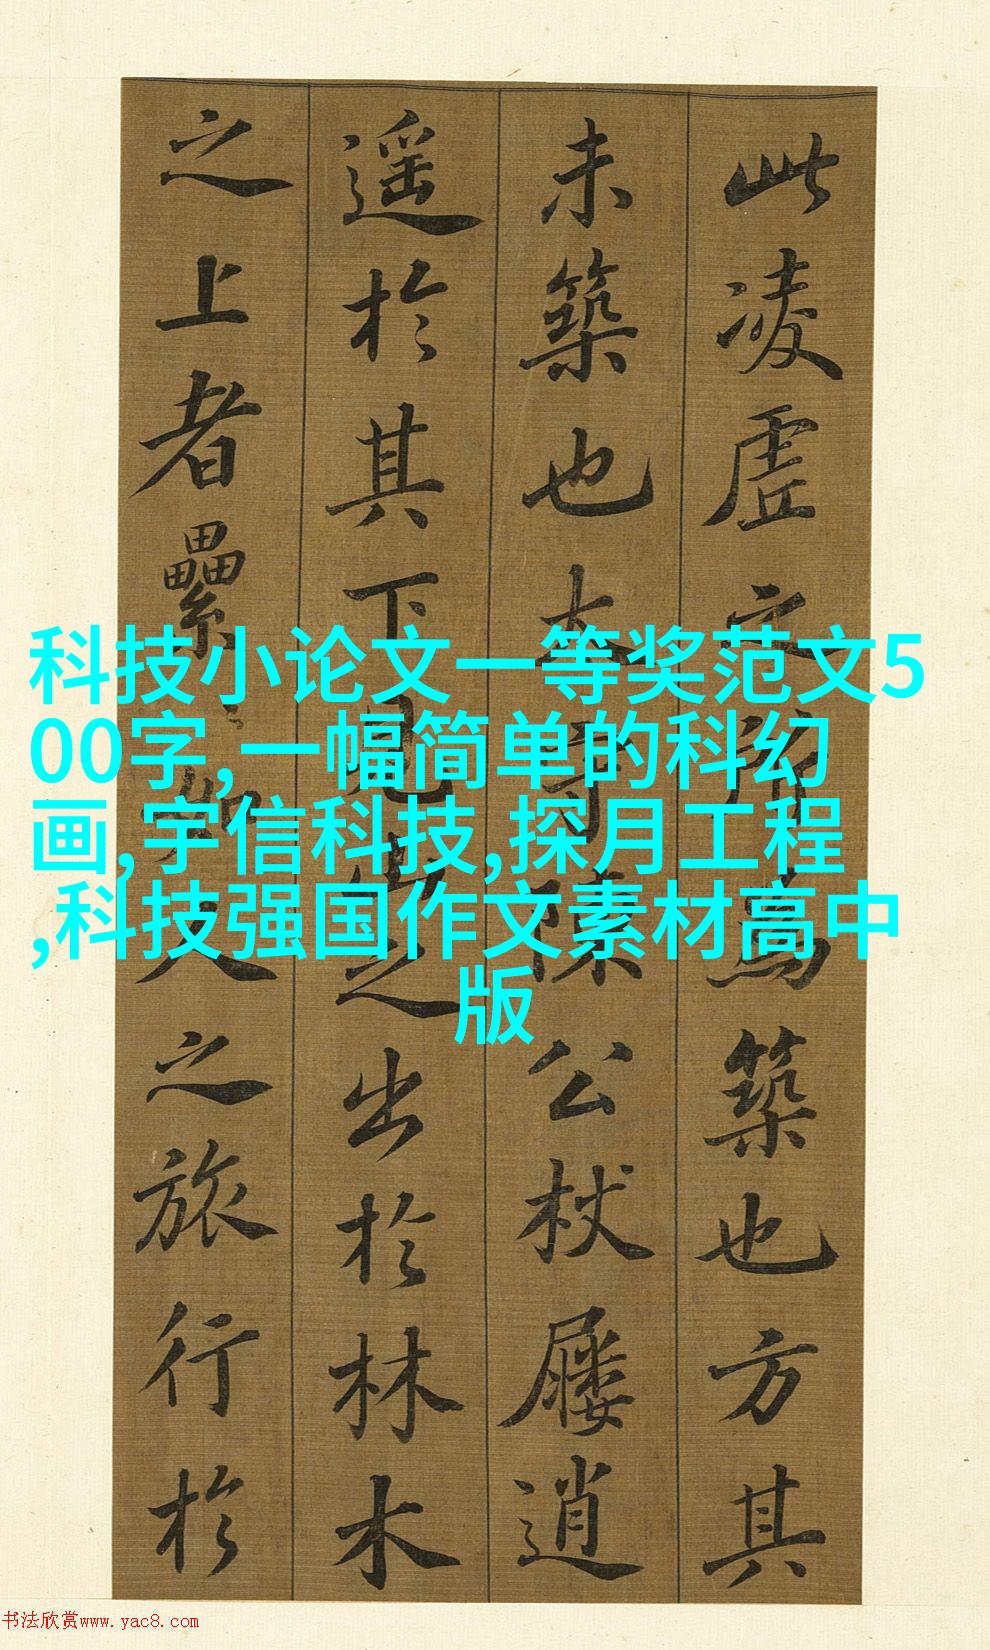 此凌虛之所為築也方其
未築也太守陳公杖屨逍
遥於其下見山之出於林木
之上者纍〻如人之旅行於
科技小论文一等奖范文5
00字,一幅简单的科幻
画,宇信科技,探月工程
,科技强国作文素材高中
版
书法欣赏www.yac8.com